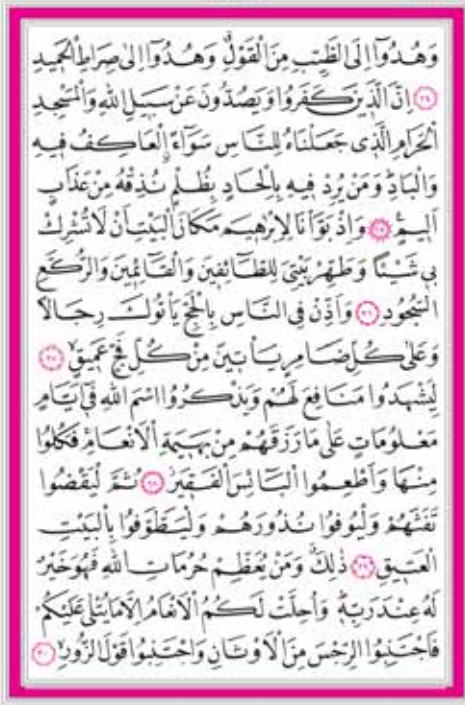 وَهُدُٓوا اِلَى الطَّيِّبِ مِنَ الْقَوْلِۚ وَهُدُٓوا اِلٰى صِرَاطِ الْحَمٖيدِ
﴿٢٤﴾ اِنَّ الَّذٖينَ كَفَرُوا وَيَصُدُّونَ عَنْ سَبٖيلِ اللّٰهِ وَالْمَسْجِدِ
الْحَرَامِ الَّذٖى جَعَلْنَاهُ لِلنَّاسِ سَوَٓاءًۨ الْعَاكِفُ فٖيهِ
وَالْبَادِؕ وَمَنْ يُرِدْ فٖيهِ بِاِلْحَادٍ بِظُلْمٍ نُذِقْهُ مِنْ عَذَابٍ
اَلٖيمٍ ﴿٢٥﴾ وَاِذْ بَوَّاْنَا لِاِبْرٰهٖيمَ مَكَانَ الْبَيْتِ اَنْ لَا تُشْرِكْ
بٖى شَيْئًا وَطَهِّرْ بَيْتِىَ لِلطَّٓائِفٖينَ وَالْقَٓائِمٖينَ وَالرُّكَّعِ
السُّجُودِ ﴿٢٦﴾ وَاَذِّنْ فِى النَّاسِ بِالْحَجِّ يَاْتُوكَ رِجَالًا
وَعَلٰى كُلِّ ضَامِرٍ يَاْتٖينَ مِنْ كُلِّ فَجٍّ عَمٖيقٍۙ ﴿٢٧﴾
لِيَشْهَدُوا مَنَافِعَ لَهُمْ وَيَذْكُرُوا اسْمَ اللّٰهِ فٖٓى اَيَّامٍ
مَعْلُومَاتٍ عَلٰى مَا رَزَقَهُمْ مِنْ بَهٖيمَةِ الْاَنْعَامِۚ فَكُلُوا
مِنْهَا وَاَطْعِمُوا الْبَٓائِسَ الْفَقٖيرَؗ ﴿٢٨﴾ ثُمَّ لْيَقْضُوا
تَفَثَهُمْ وَلْيُوفُوا نُذُورَهُمْ وَلْيَطَّوَّفُوا بِالْبَيْتِ
الْعَتٖيقِ ﴿٢٩﴾ ذٰلِكَۗ وَمَنْ يُعَظِّمْ حُرُمَاتِ اللّٰهِ فَهُوَ خَيْرٌ
لَهُ عِنْدَ رَبِّهٖؕ وَاُحِلَّتْ لَكُمُ الْاَنْعَامُ اِلَّا مَا يُتْلٰى عَلَيْكُمْ
فَاجْتَنِبُوا الرِّجْسَ مِنَ الْاَوْثَانِ وَاجْتَنِبُوا قَوْلَ الزُّورِۙ ﴿٣٠﴾